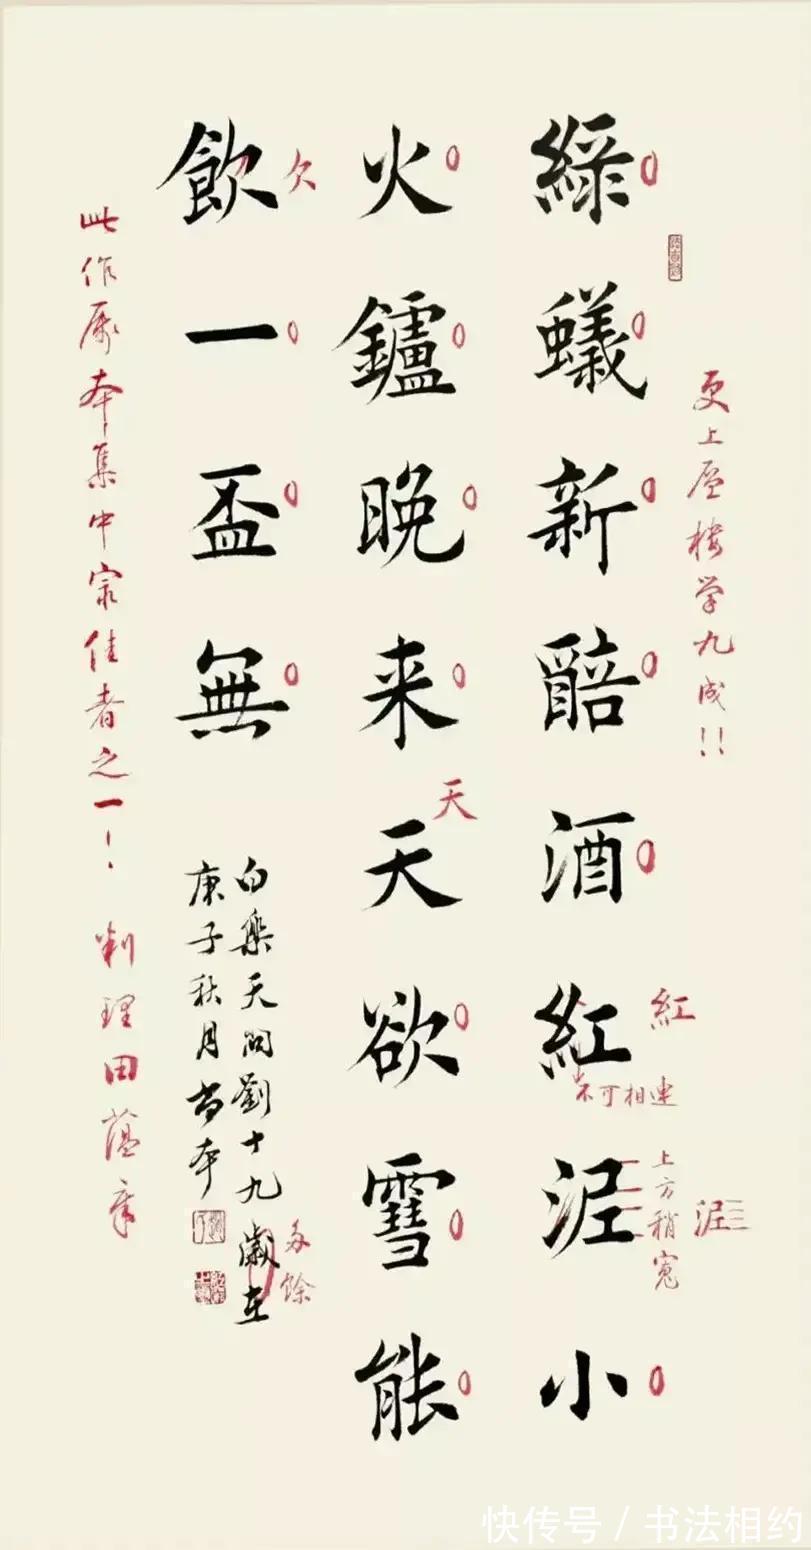 更上層樓学九成!!
綠蟻新醅酒紅泥小
紅
不可相連
上方稍寬
泥
火鑪晚来天欲雪能
天
飲一盃無
欠
白樂天問劉十九歲在
多餘
庚子秋月
此作屬本集中最佳者之一!
田蘊章
快传号 / 书法相约